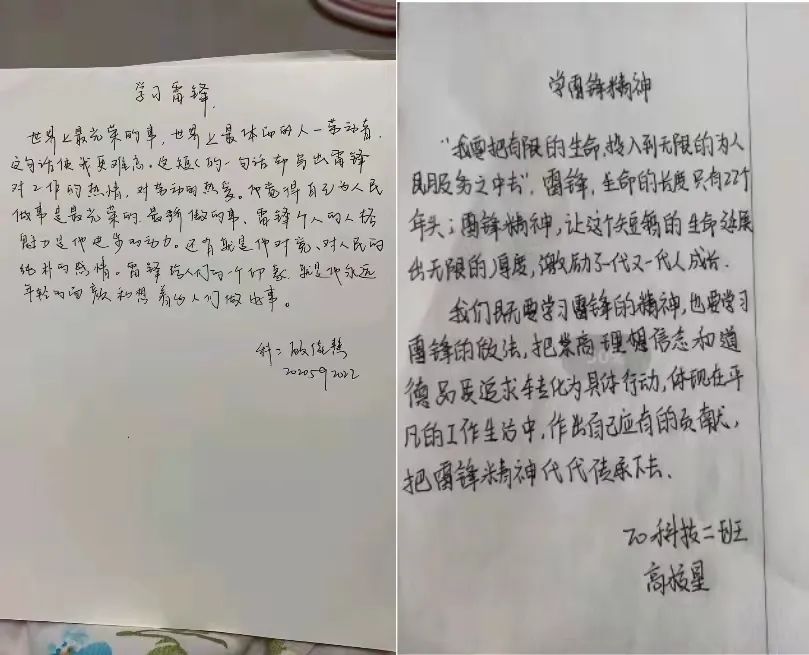 学习雷锋.
世界上最光荣的事,世界上最体面的人一劳动者.
这句话使我更难忘。这短短的一句话却写出雷锋
对工作的热情,对劳动的热爱。他觉得自己为人民
做事是最光荣的最骄傲的事、雷锋个人的人格
魅力是他进步的动力。还有就是他对党、对人民的
纯朴的感情。雷锋给人们的一个印象就是他永远
年轻的面颜和想着为人们做好事。
科二
2020592022
学雷锋精神
"我要把有限的生命,投入到无限的为人
民服务之中去",雷锋,生命的长度只有22个
年头;雷锋精神,让这个短暂的生命延展
出无限的厚度,激励了一代又一代人成长.
我们既要学习雷锋的精神,也要学习
雷锋的做法,把崇高理想信念和道
德品质追求转化为具体行动,体现在平
凡的工作生活中,作出自己应有的贡献,
把雷锋精神代代传承下去.
20科技二班
高核星